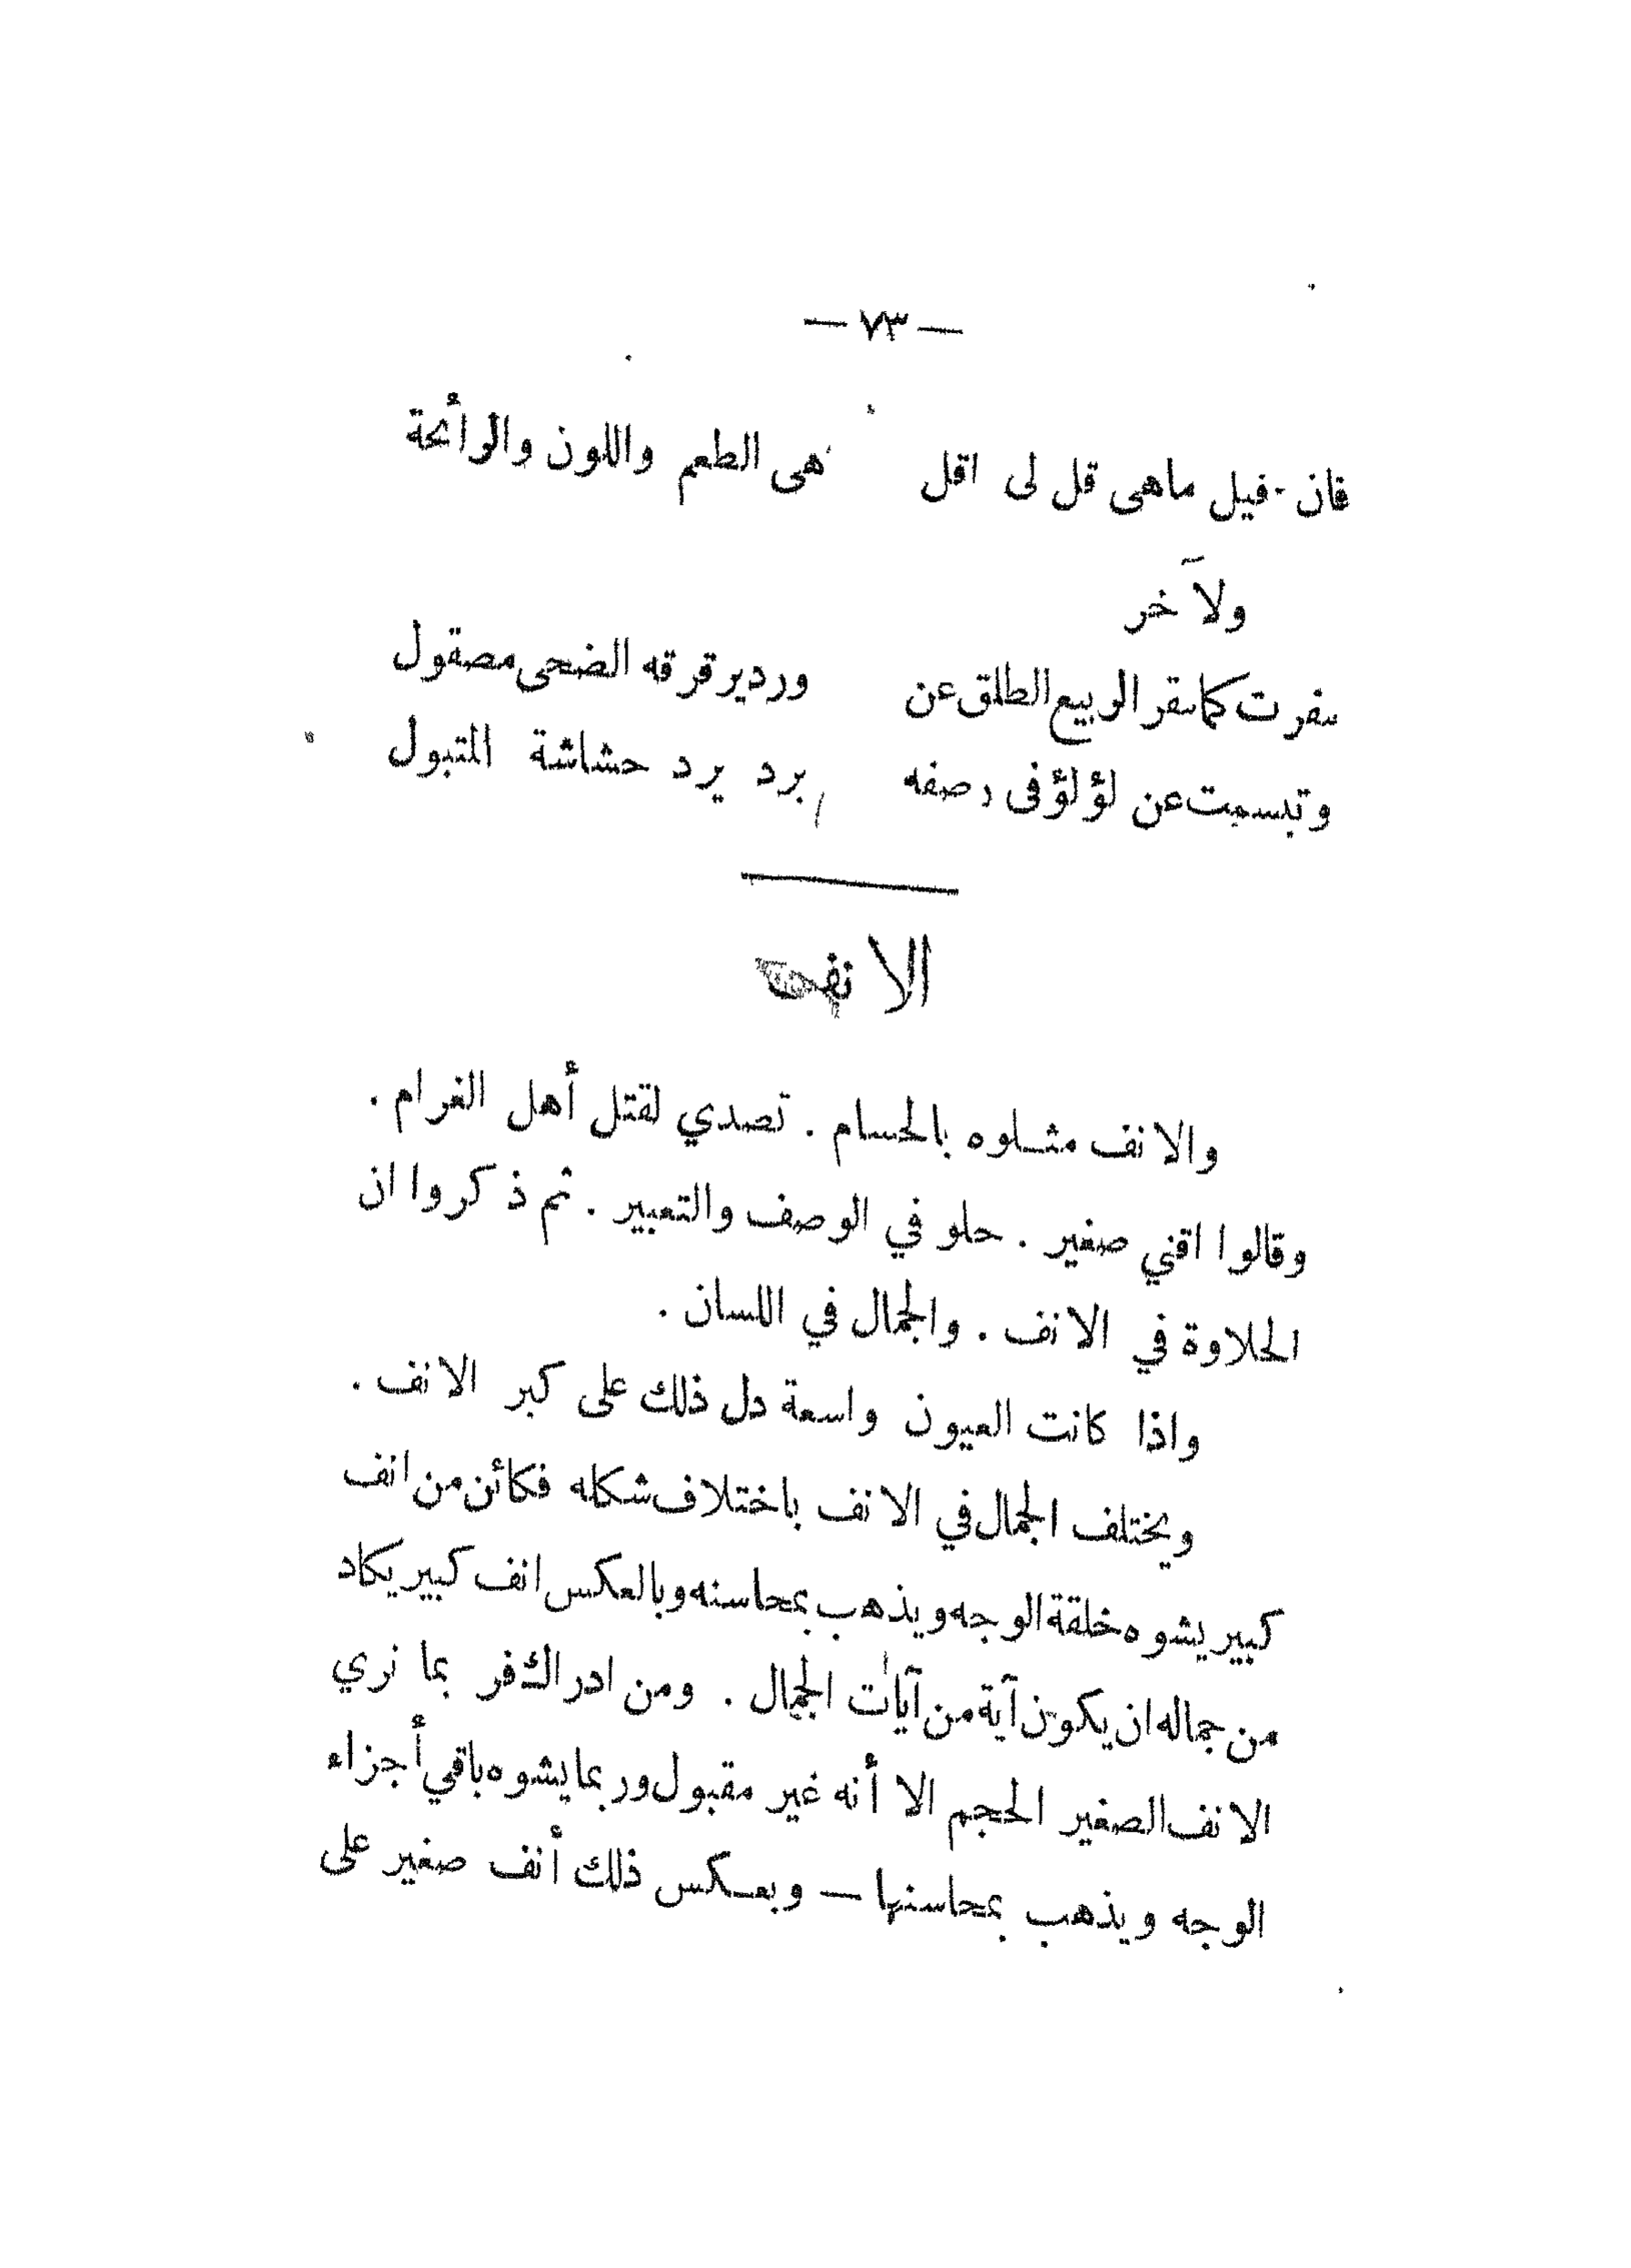 — ٧٣ —
فان قيل ماهى قل لى اقل هى الطعم واللون والرأئحة
ولآخر
سفرت كما سفر الربيع الطلق عن ورد يرقرقه الضحى مصقول
وتبسمت عن لؤلؤ فى رصفه برد يرد حشاشة المتبول
الانف
والانف مثلوه بالحسام . تصدي لقتل أهل الغرام .
وقالوا اقني صغير . حلو في الوصف والتعبير . ثم ذكروا ان
الحلاوة في الانف . والجمال في اللسان .
واذا كانت العيون واسعة دل ذلك على كبر الانف .
ويختلف الجمال في الانف باختلاف شكله فكائن من انف
كبير يشوه خلقة الوجه ويذهب بمحاسنه وبالعكس انف كبير يكاد
من جماله ان يكون آية من آيات الجمال . ومن ادراك فر بما نري
الانف الصغير الحجم الا أنه غير مقبول وربما يشوه باقي أجزاء
الوجه ويذهب بمحاسنها — وبعكس ذلك أنف صغير على